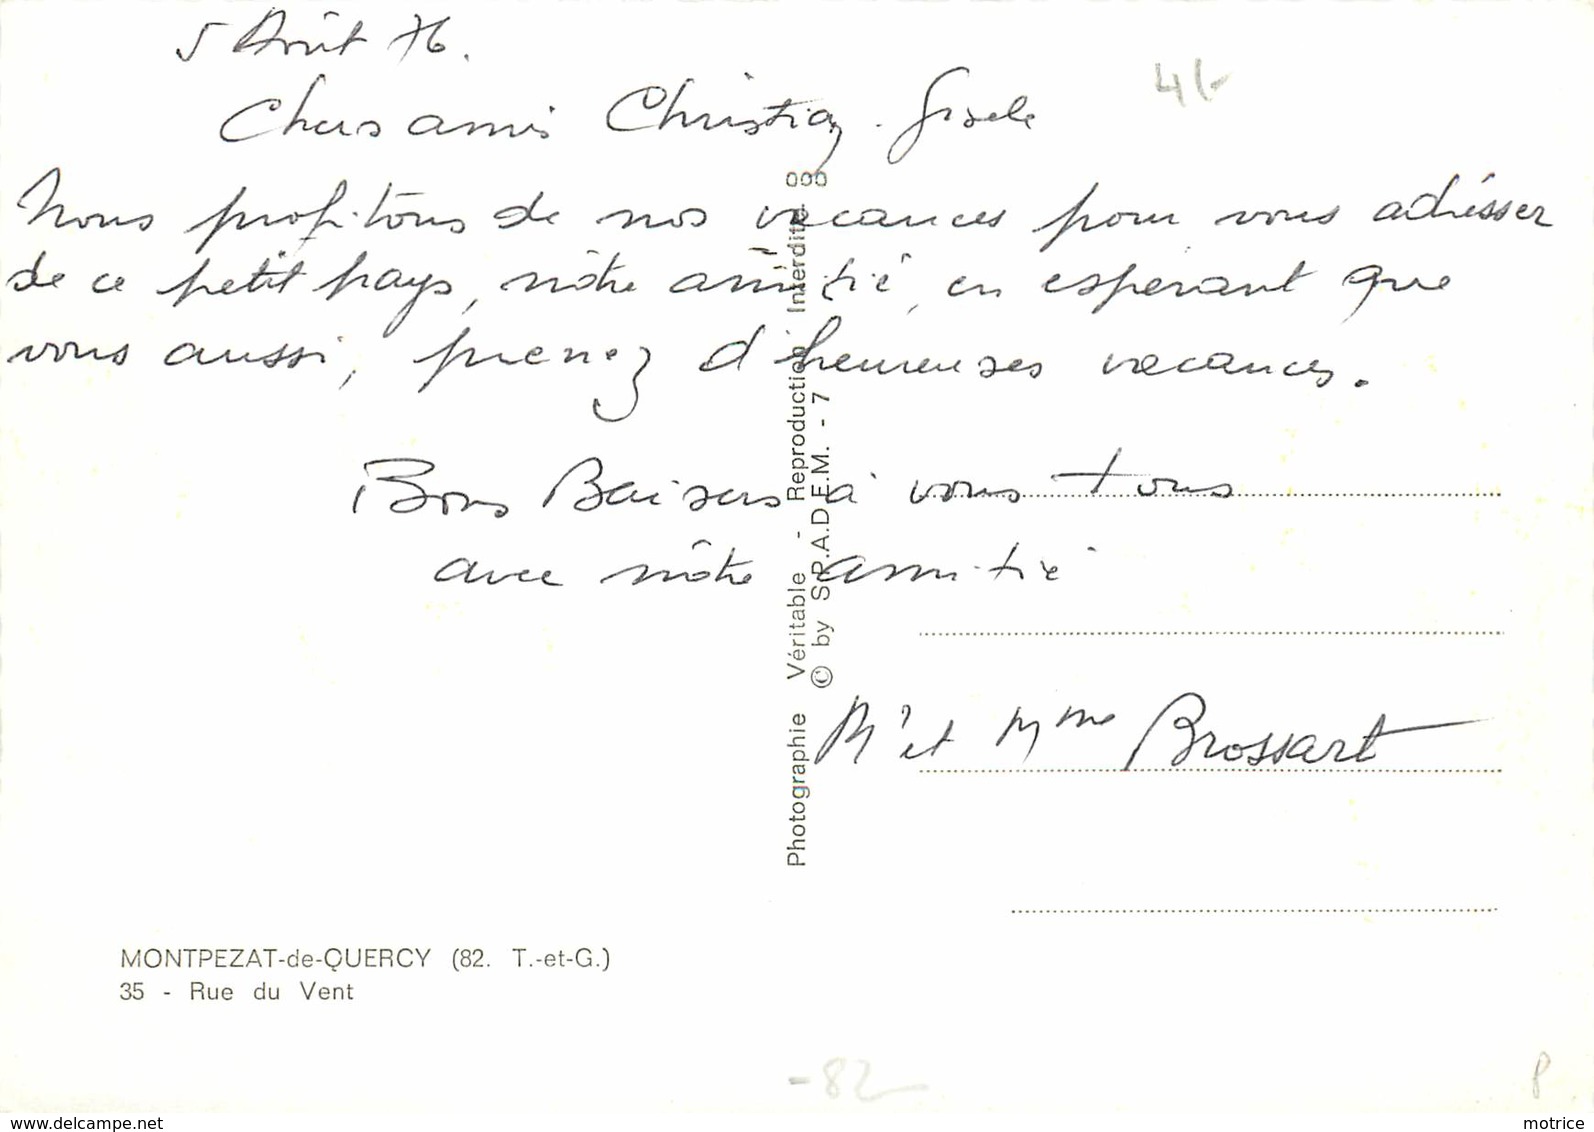 5 Août 76.
4/-
Chers amis Christian. Gisele
Nous profitons de nos vacances pour vous adrésser
de ce petit pays, nôtre amitié, en espérant que
vous aussi, prenez d'heureuses vacances.
Bons Baisers à vous tous
avec nôtre amitié
Mr et Mme Brossart
Photographie Véritable - Reproduction Interdite 000
© by S.P.A.D.E.M. - 7
MONTPEZAT-de-QUERCY (82. T.-et-G.)
35 - Rue du Vent
-82
P
www.delcampe.net
motrice